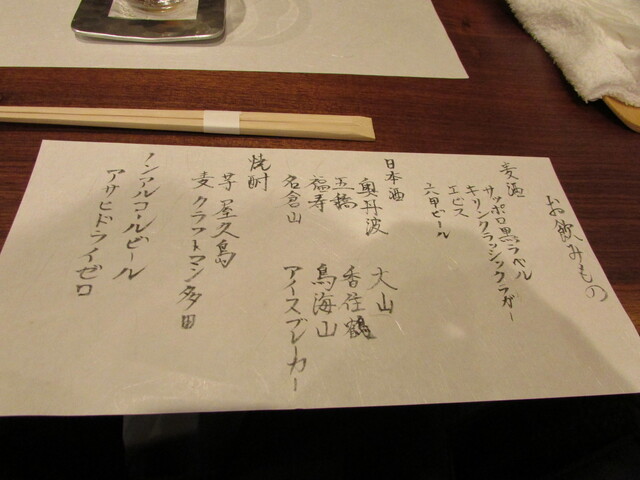 お飲みもの
麦酒
サッポロ黒ラベル
キリンクラッシックラガー
エビス
六甲ビール
日本酒
奥丹波
五橋
福寿
名倉山
大山
香住鶴
鳥海山
アイスブレーカー
焼酎
芋 屋久島
麦 クラフトマン多田
ノンアルコールビール
アサヒドライゼロ